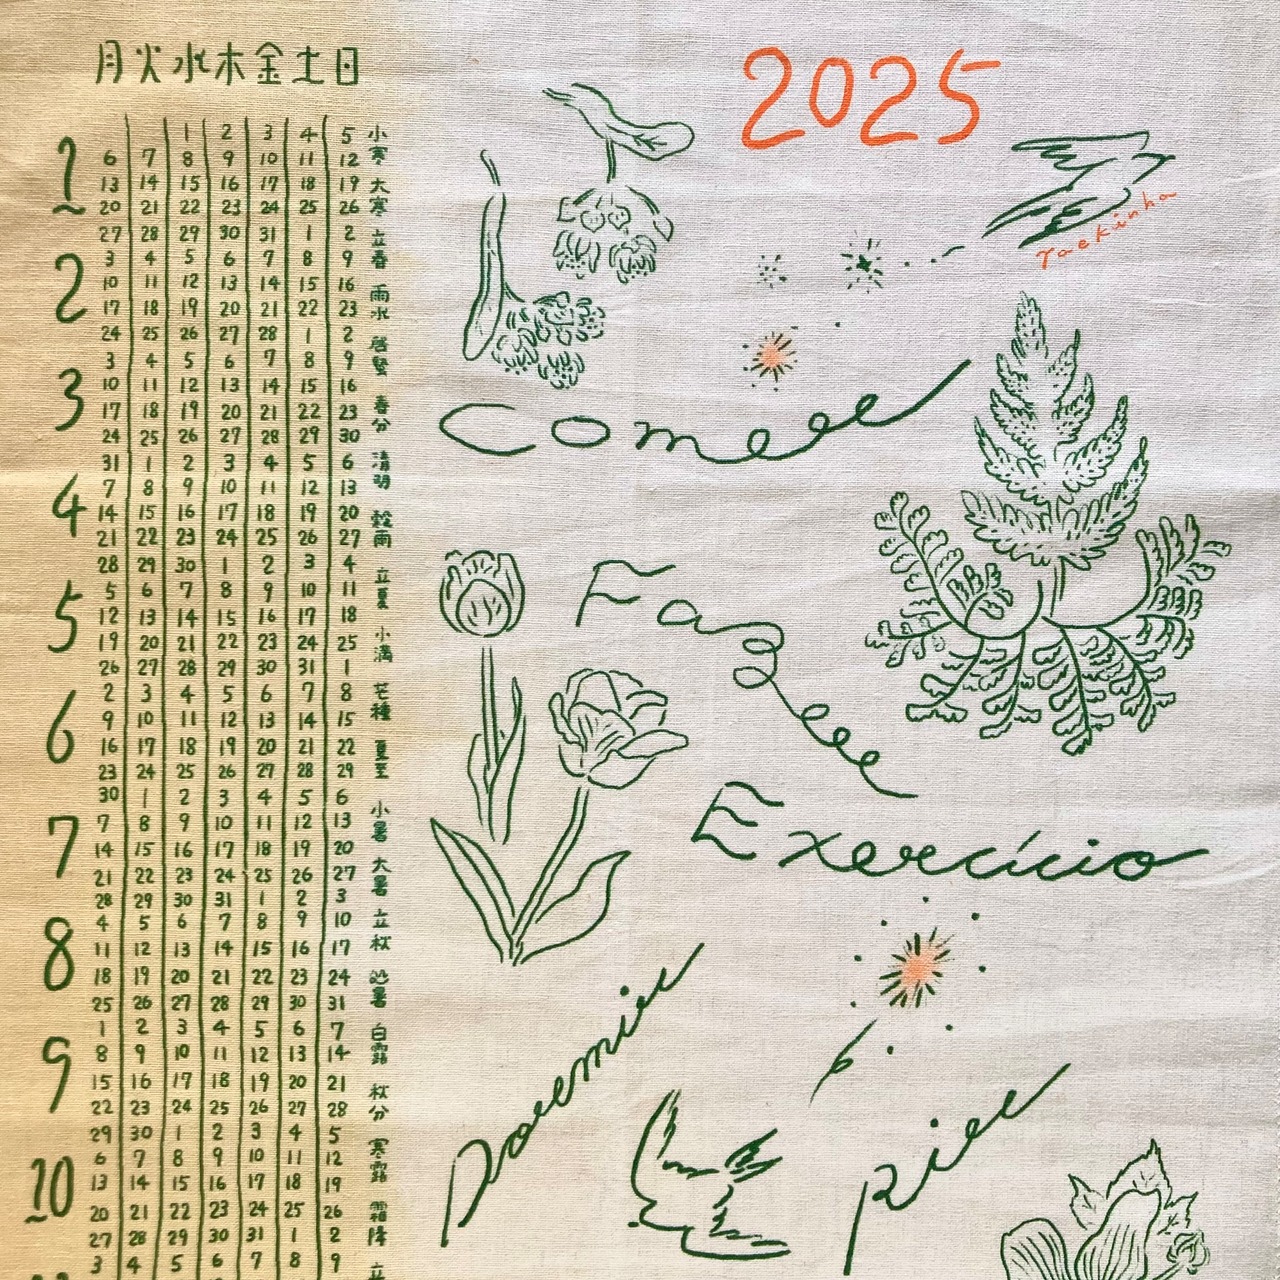 月火水木金土日
2025
1
1 2 3 4 5 小寒
6 7 8 9 10 11 12
13 14 15 16 17 18 19 大寒
20 21 22 23 24 25 26
27 28 29 30 31 1 2 立春
2
3 4 5 6 7 8 9
10 11 12 13 14 15 16 雨水
17 18 19 20 21 22 23
24 25 26 27 28 1 2 啓蟄
3
3 4 5 6 7 8 9
10 11 12 13 14 15 16 春分
17 18 19 20 21 22 23
24 25 26 27 28 29 30
31 1 2 3 4 5 6 清明
4
7 8 9 10 11 12 13
14 15 16 17 18 19 20 穀雨
21 22 23 24 25 26 27
28 29 30 1 2 3 4 立夏
5
5 6 7 8 9 10 11
12 13 14 15 16 17 18 小満
19 20 21 22 23 24 25
26 27 28 29 30 31 1 芒種
6
2 3 4 5 6 7 8
9 10 11 12 13 14 15 夏至
16 17 18 19 20 21 22
23 24 25 26 27 28 29
30 1 2 3 4 5 6 小暑
7
7 8 9 10 11 12 13
14 15 16 17 18 19 20 大暑
21 22 23 24 25 26 27
28 29 30 31 1 2 3 立秋
8
4 5 6 7 8 9 10
11 12 13 14 15 16 17
18 19 20 21 22 23 24 処暑
25 26 27 28 29 30 31
9
1 2 3 4 5 6 7 白露
8 9 10 11 12 13 14
15 16 17 18 19 20 21 秋分
22 23 24 25 26 27 28
29 30 1 2 3 4 5 寒露
10
6 7 8 9 10 11 12
13 14 15 16 17 18 19
20 21 22 23 24 25 26 霜降
27 28 29 30 31 1 2
3 4 5 6 7 8 9 立
Taekinha
Comeer
Fazeer
Exercício